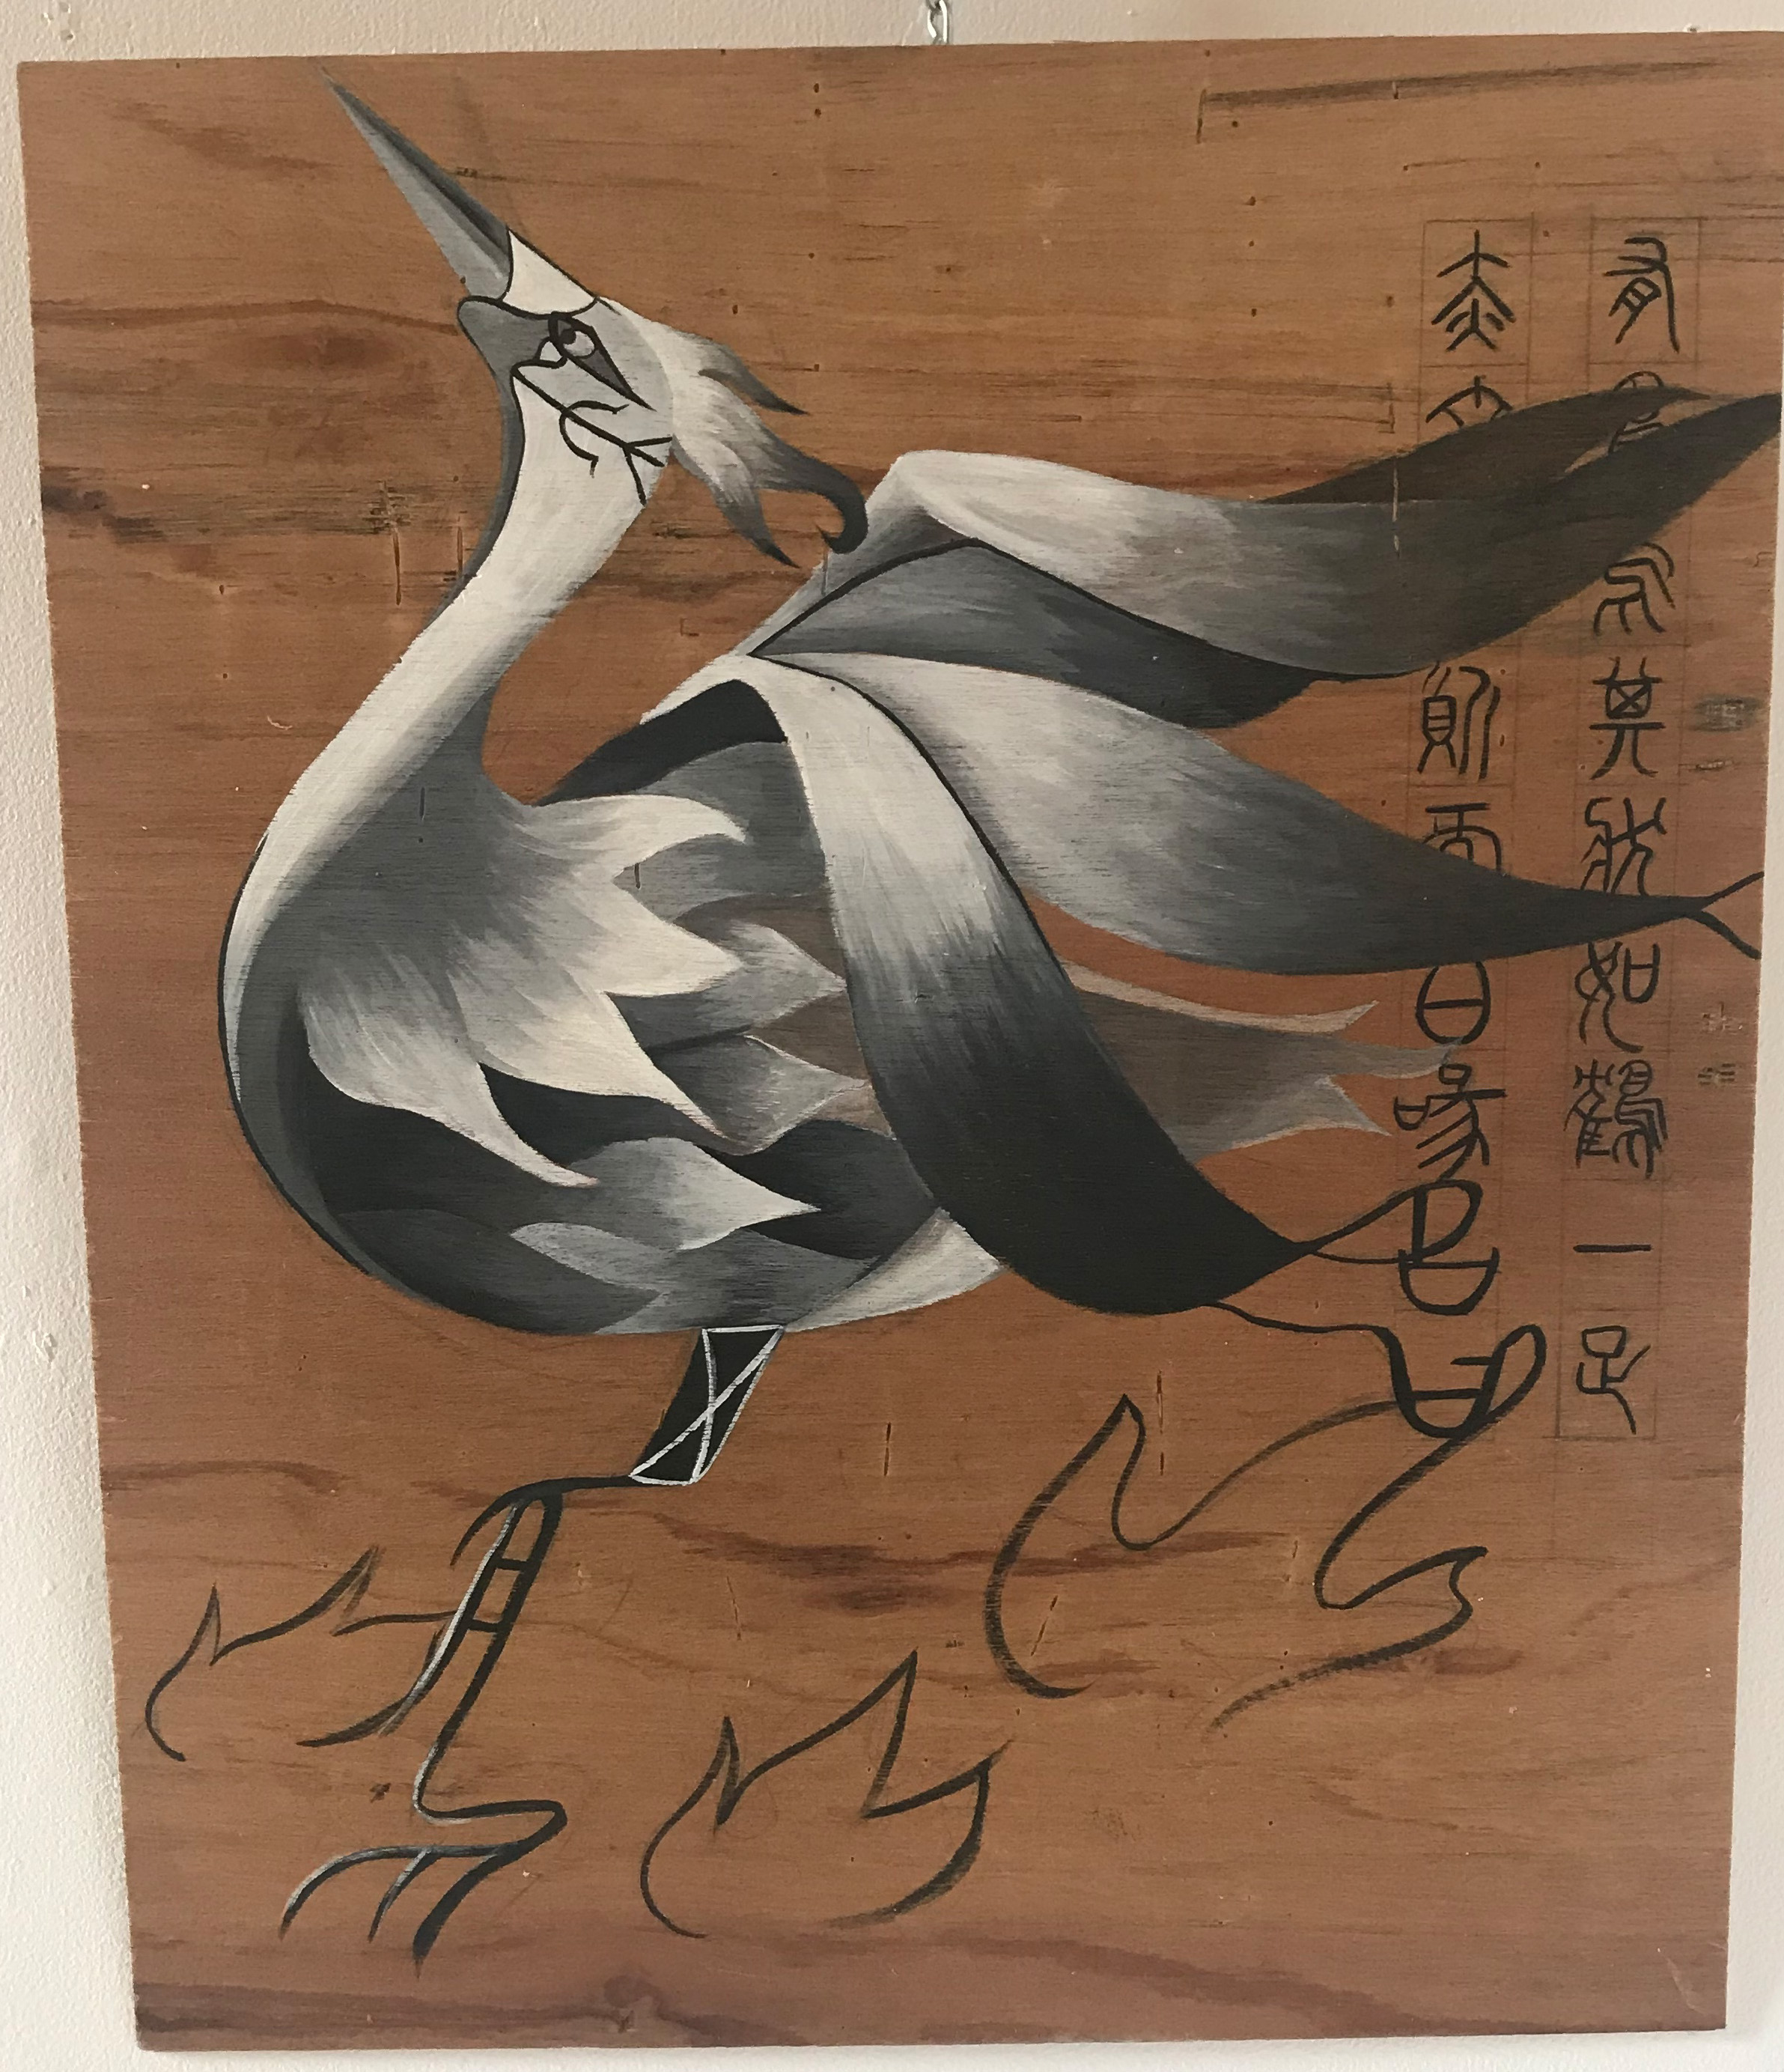 有鳥焉其狀如鶴一足
赤文而白喙名曰